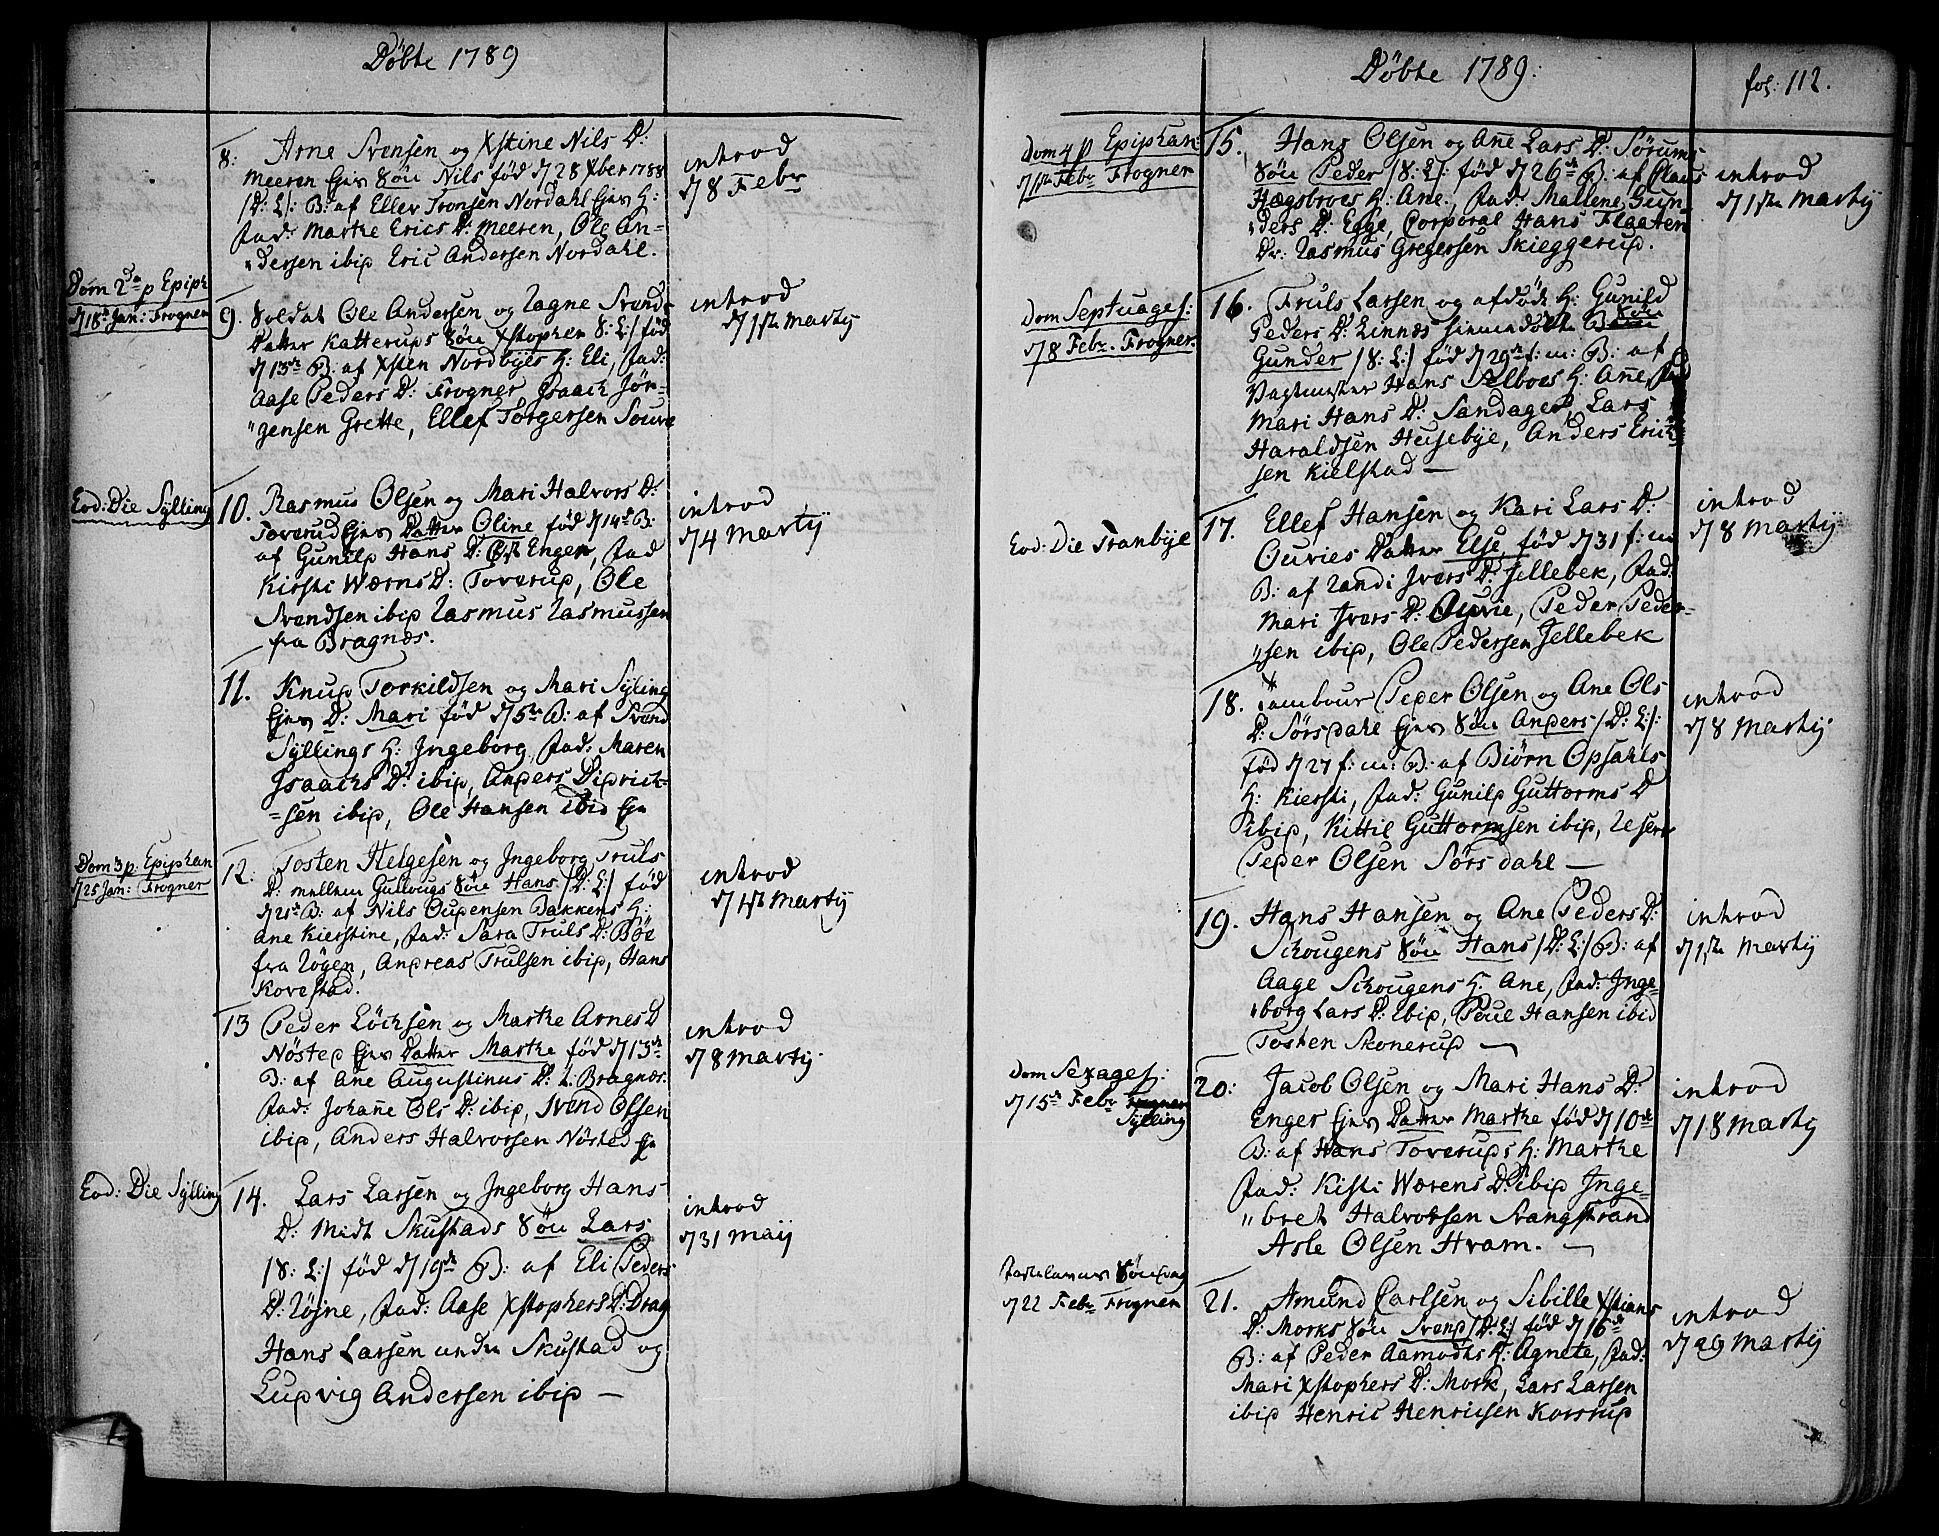 Döbte 1789
8: Arne Svensen og Xstine Nils D:
Meeren Ejes Sön Nils föd d 28 Xber 1788
/D: L/: B: af Ellev Tronsen Nordahl Ejes H:
fad: Marthe Erics D: Meeren, Ole An=
dersen ibid Eric Andersen Nordahl.
introd
d 8 Febr
Dom 2da p Epiph
d 18de Jan: Frogner
9. Soldat Ole Andersen og Ragne Svends
Datter Katterups Sön Xstopher S: L:/ föd
d 13de B: af Xsten Nordbyes H: Eli, fad:
Aase Peders D: Frogner Isaach Jör=
gensen Grette, Ellef Torgersen
introd
d 1ste Martij
Eod: Die Sylling
10. Rasmus Olsen og Mari Halvors D:
Toverud Ejes Datter Oline föd d 14de B:
af Gunild Hans D: Enger, fad
Kirsti Wærns D: Toverud, Ole
Svendsen ibid Rasmus Rasmussen
fra Bragnæs.
introd
d 4 Martij
11. Knud Torkildsen og Mari Sylling
Ejes D: Mari föd d 5te B: af Svend
Syllings H: Ingeborg, fad: Maren
Isaachs D: ibid, Anders Didrich=
sen ibid, Ole Hansen ibid
Dom 3 p. Epiphan
d 25 Jan: Frogner
12. Tosten Helgesen og Ingeborg Truls
D: mellem Gullougs Sön Hans /D: L:/ föd
d 21de B: af Nils Oudensen Bakkens H:
Ane Kierstine, fad: Sara Truls D: Böe
fra Röyen, Andreas Trulsen ibid, Hans
Kovestad.
introd
d 1ste Martij
13 Peder Löchsen og Marthe Arnes D
Nösted Ejes Datter Marthe föd d 13de
B: af Ane Augustinus D: i Bragnæs.
fad: Johañe Ols D: ibid, Svend Olsen
ibid, Anders Halvorsen Nösted
introd
d 8 Martij.
Eod: Die Sylling
14. Lars Larsen og Ingeborg Hans
D: Midt Skustads Sön Lars
/S: L:/ föd d 19de B: af Eli Peders
D: Röjne, fad: Aase Xstophers D: Drag
Hans Larsen under Skustad og
Ludvig Andersen ibid —
introd
d 31 Maij
Döbte 1789:
fol: 112.
Dom 4 p Epiphan:
d 1ste Febr Frogner
15. Hans Olsen og Añe Lars D: Sörums
Sön Peder /S: L:/ föd d 26de B: af Claus
Hægsbroes H: Ane, fad: Mallene Gun=
ders D: Egge, Corporal Hans Flaaten
Dr: Rasmus Gregersen Skieggerup.
introd
d 1ste Martij
Dom Septuages:
d 8 Febr. Frogner.
16. Truls Larsen og afdöde H: Gunild
Peders D: Linnæs Sön
Gunder /S: L:/ föd d 29de f: m: B: af
Vagtmester Hans Selboes H: Añe, fad
Mari Hans D: Sandager, Lars
Haraldsen Husebye, Anders Erich
sen Kielstad —
Eod: Die Tranbye
17. Ellef Hansen og Kari Lars D:
Ouvies Datter Else, föd d 31 f: m
B: af Randi Ivers D: Jellebek, fad:
Mari Ivers D: Ouvie, Peder Peder=
sen ibid, Ole Pedersen Jellebek
introd
d 8 Martij
18. Tambour Peder Olsen og Ane Ols
D: Sörsdahl Ejes Sön Anders /D: L:/:
föd d 27 f: m: B: af Biörn Opsahls
H: Kiersti, fad: Gunild Guttorms D
ibid, Kittil Guttormsen ibid, Reserv
Peder Olsen Sörsdahl —
introd
d 8 Martij
19. Hans Hansen og Ane Peders D:
Schougens Sön Hans /D: L:/ B: af
Aage Schougens H: Ane, fad: Inge=
borg Lars D: ibid, Poul Hansen ibid
Tosten Skonerup —
introd
d 1ste Martij
Dom Sexages:
d 15de Febr Frogner
Sylling
20: Jacob Olsen og Mari Hans D:
Enger Ejes Datter Marthe föd d 10de
B: af Hans Toverups H: Marthe
fad: Kisti Wærens D: ibid Inge=
bret Halvorsen Svangstrand
Asle Olsen Hvam. —
introd
d 18 Martij
Fastelavns Söndag
d 22 Febr Frogner
21. Amund Carlsen og Sibille Xstians
D: Morks Sön Svend /D: L:/ föd d 16de
B: af Peder Aamodts H: Agnete, fad:
Mari Xstophers D: Mork, Lars Larsen
ibid Henric Henricsen Korsrup
introd
d 29 Martij